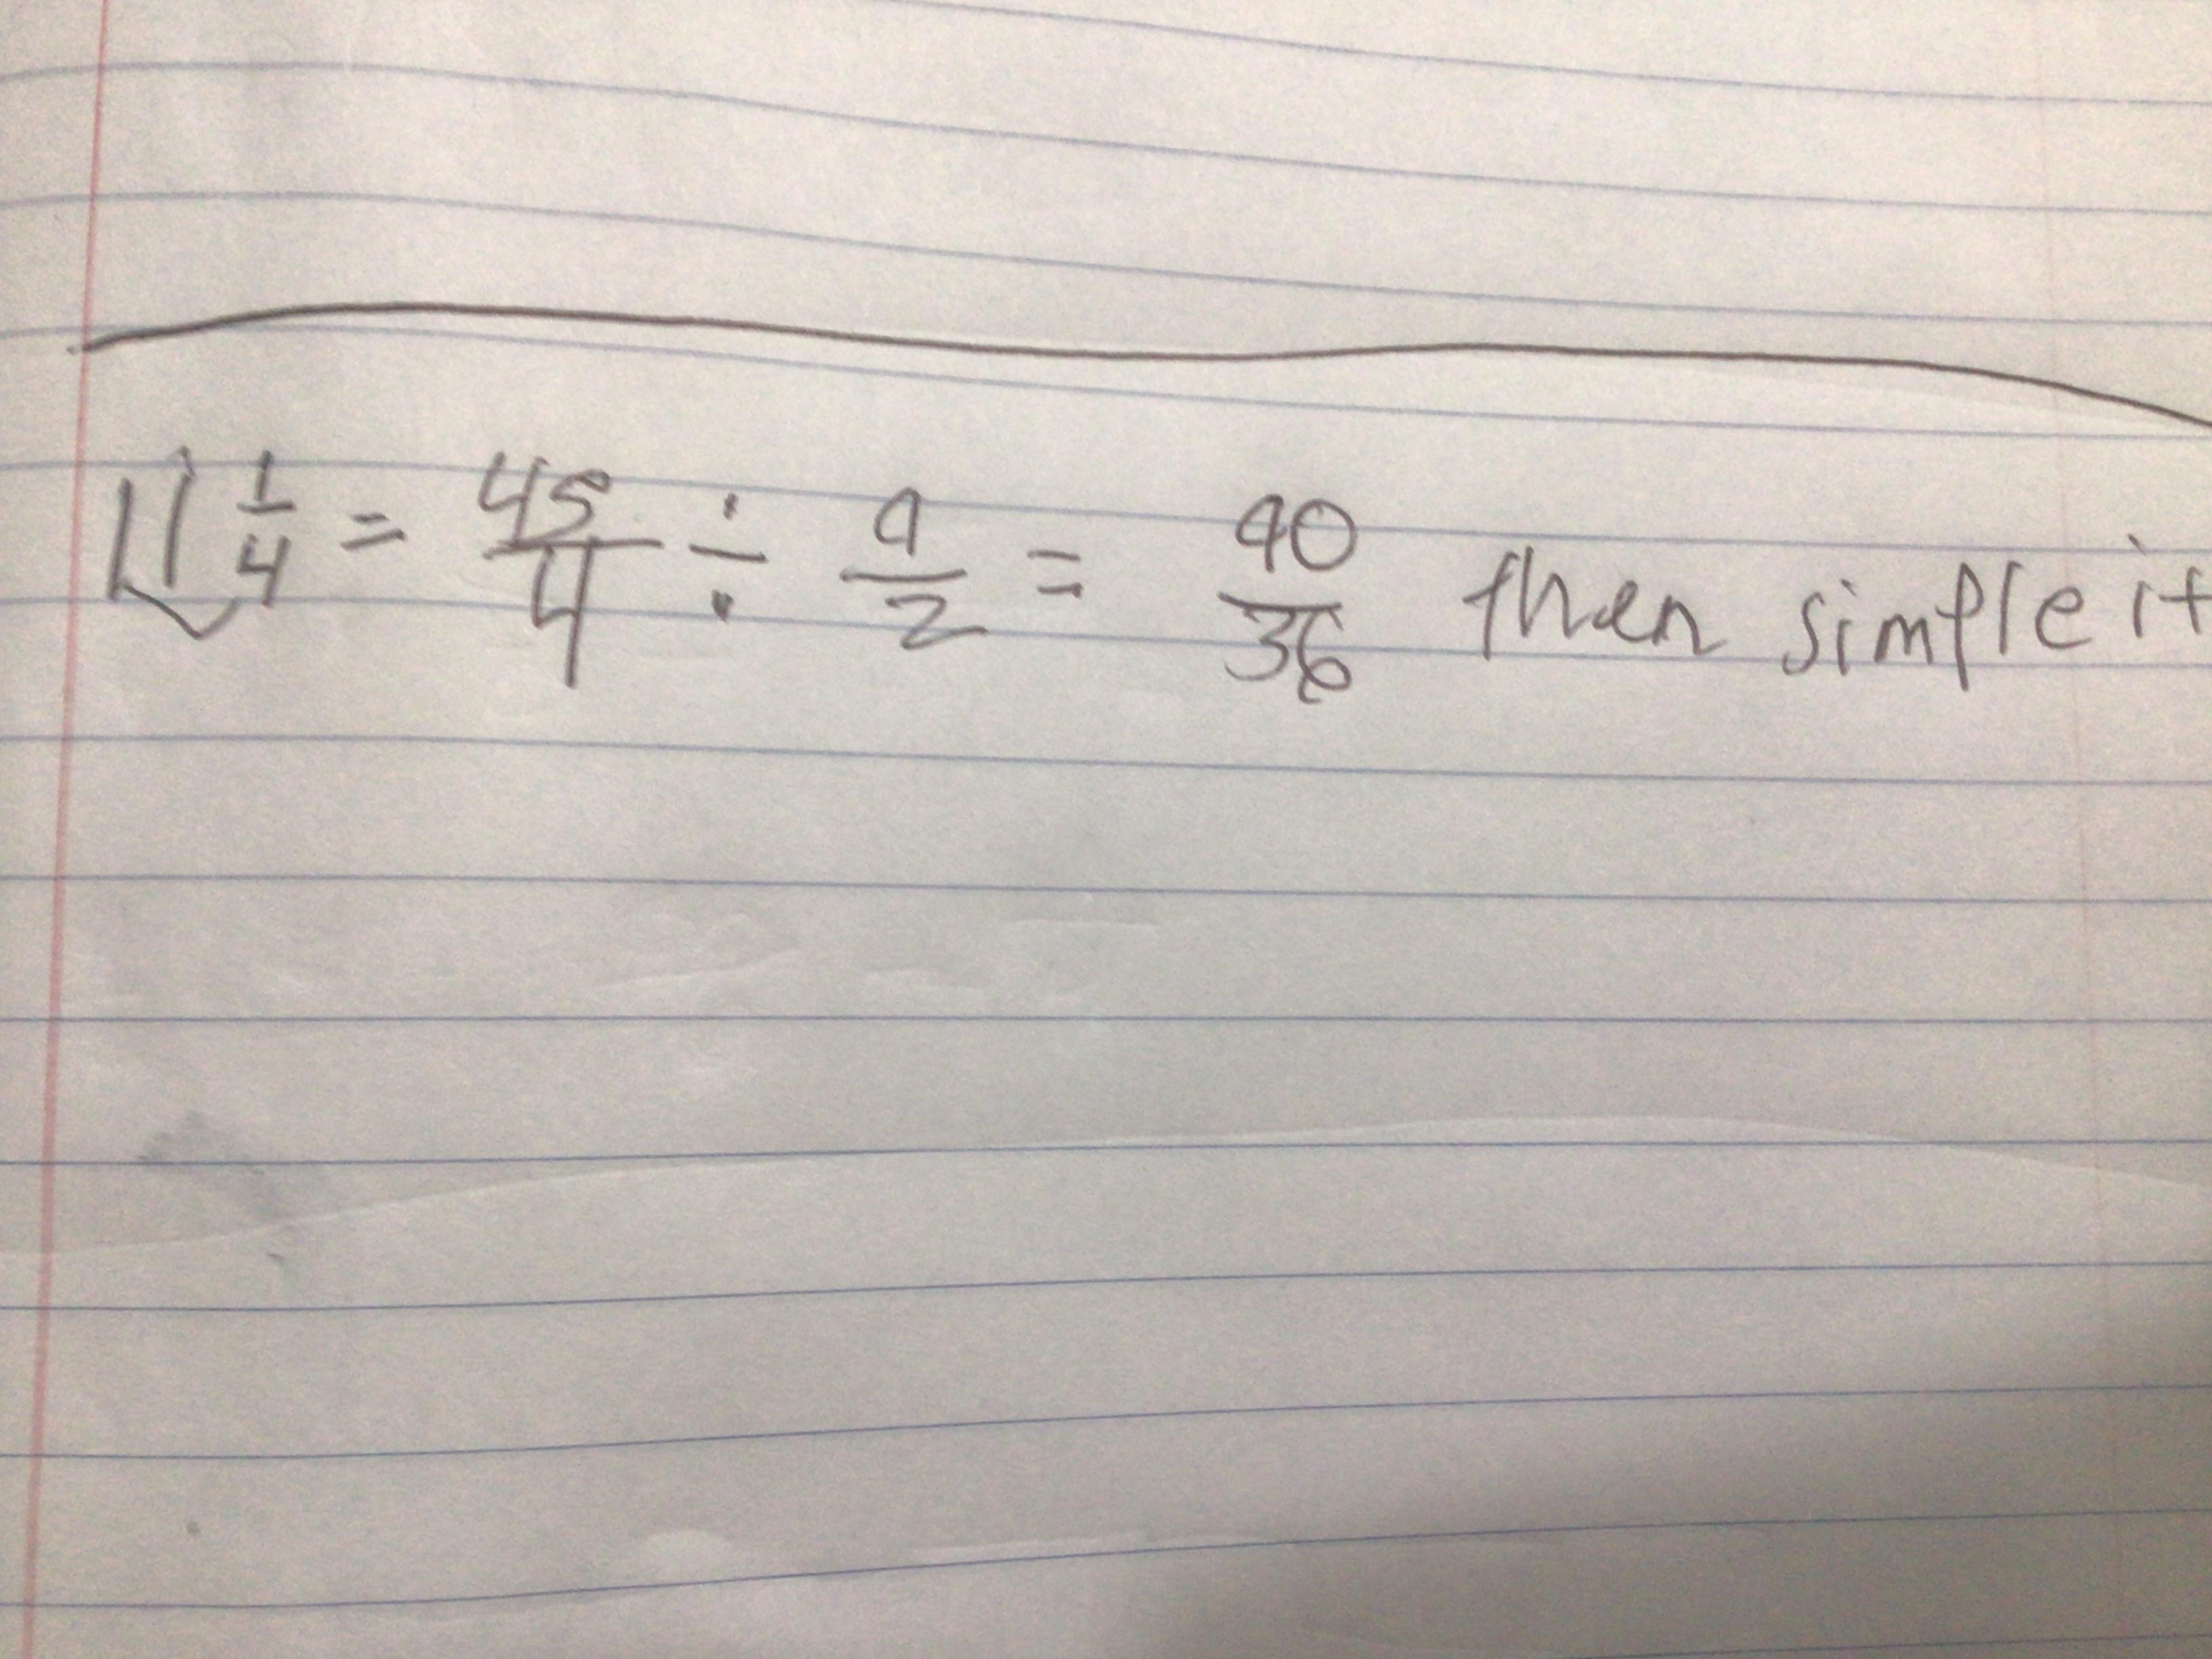 11 1/4 = 45/4 ÷ 9/2 = 90/36 then simple it